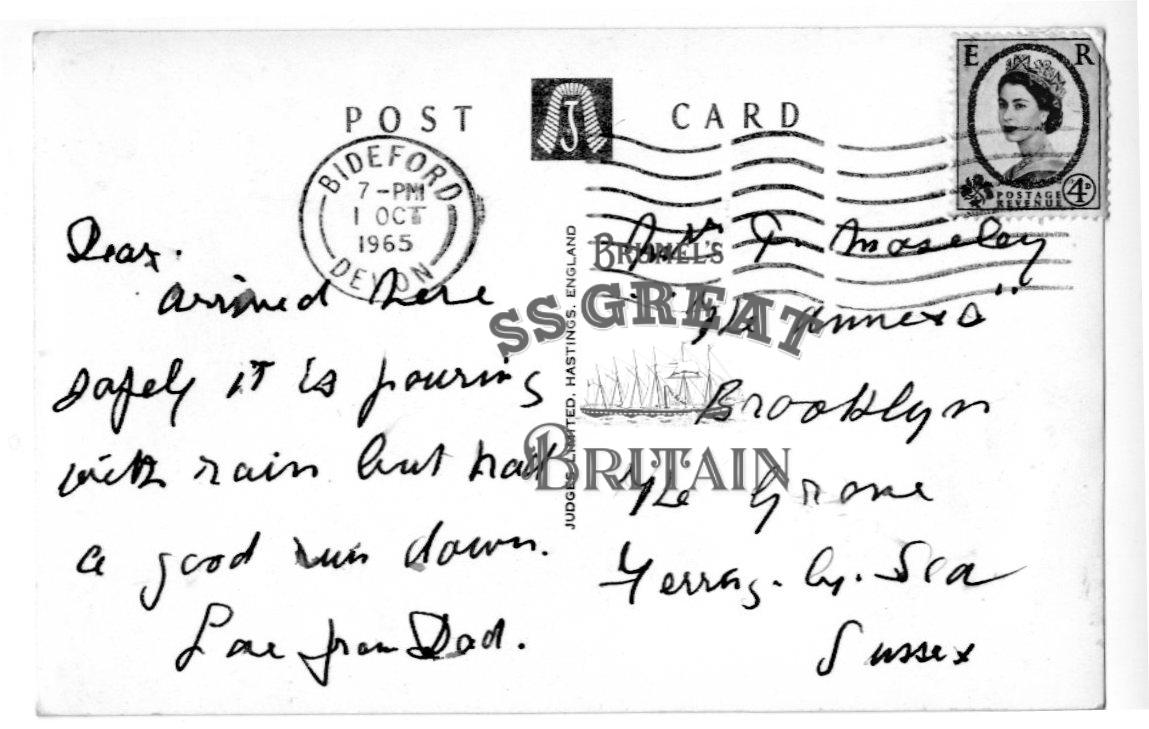 POST CARD
E R
POSTAGE
REVENUE
4D
BIDEFORD
7-PM
1 OCT
1965
DEVON
Dear.
arrived here
safely it is pouring
with rain but had
a good run down.
Love from Dad.
JUDGES LIMITED, HASTINGS, ENGLAND
T. Moseley
"The Annexe"
Brooklyn
The Grove
Ferring-by-Sea
Sussex
BRUNEL'S
SS GREAT
BRITAIN